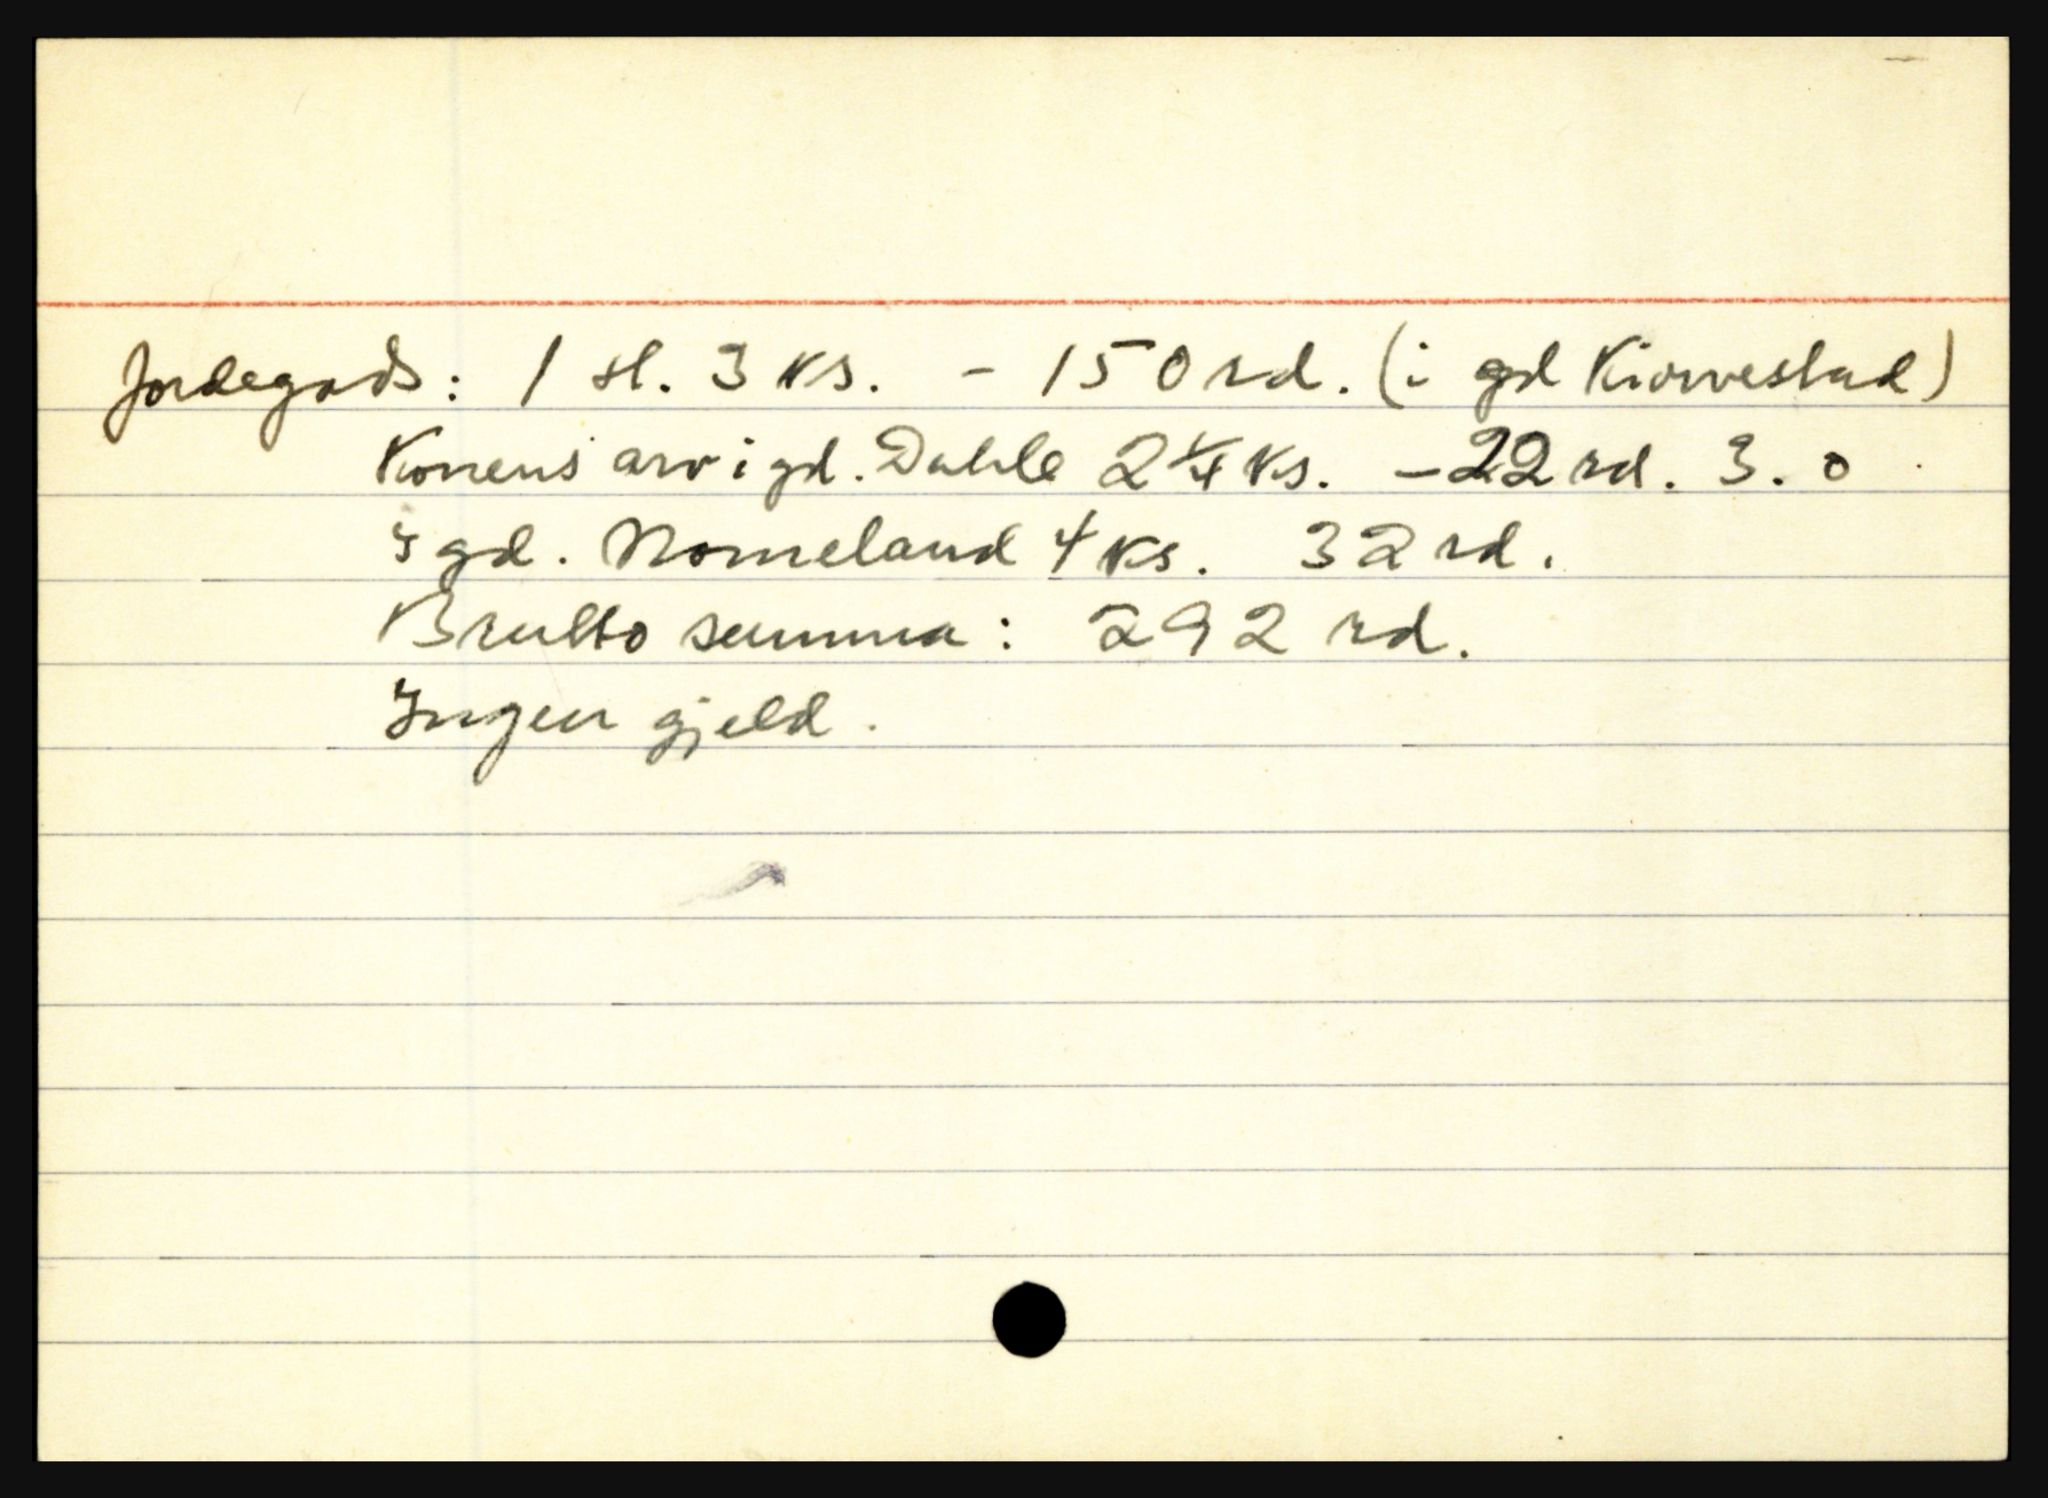 Jordegods: 1 sl. 3 ks. - 150 rd. (i gd Kiorvestad)
Konens arv i gd. Dahle 2 1/4 ks. - 22 rd. 3. 0
I gd. Nomeland 4 ks. 32 rd.
Brutto summa: 292 rd.
Ingen gjeld.